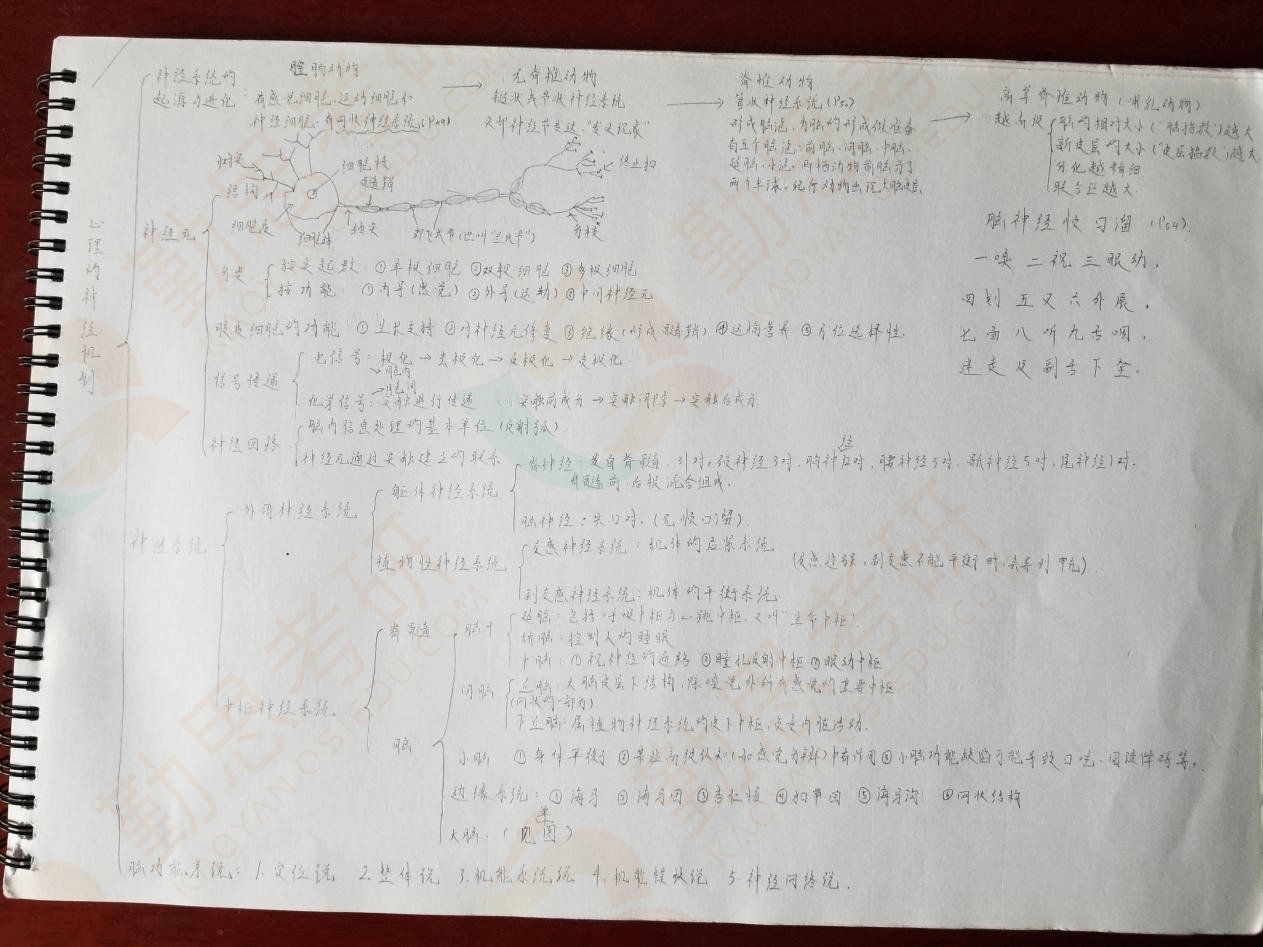 心理的神经机制
神经系统的
起源与进化:
腔肠动物
有感觉细胞,运动细胞和
神经细胞,有网状神经系统(P49)
无脊椎动物
链状或节状神经系统
头部神经节发达,"发史现象"
脊椎动物
管状神经系统(P50)
形成脑泡,为脑的形成做准备
有五个脑泡:前脑、间脑、中脑、
延脑、小泡。两栖动物前脑分了
两个半球。爬行动物出现大脑皮层
高等脊椎动物(哺乳动物)
越高级
脑的相对大小("脑指数")越大
新皮层的大小("皮层指数")越大
分化越精细
联合区越大
神经元
结构
树突
细胞核
髓鞘
终止扣
细胞质
细胞体
轴突
郎飞氏节(也叫"兰氏节")
分类
按突起数:①单极细胞 ②双极细胞 ③多极细胞
按功能:①内导(感觉) ②外导(运动) ③中间神经元
脑神经快口溜(P54)
一嗅二视三眼动,
四划五叉六外展,
七面八听九舌咽,
迷走及副舌下全。
胶质细胞的功能:①生长支持 ②对神经元修复 ③绝缘(形成髓鞘) ④运输营养 ⑤方位选择性.
信号传递
电信号:极化→去极化→反极化→复极化
胞内
胞间
化学信号:突触进行传递 突触前成分→突触间隙→突触后成分
神经回路
脑内信息处理的基本单位(反射弧)
神经元通过突触建立的联系
神经系统
外周神经系统
躯体神经系统
脊神经:发自脊髓,31对。颈神经8对,胸神经12对,腰神经5对,骶神经5对,尾神经1对.
脊髓前、后根混合组成.
脑神经:共12对,(见顺口溜)
植物性神经系统
交感神经系统:机体的应激系统
(交感过强,副交感不能平衡时,会导到甲亢)
副交感神经系统:机体的平衡系统.
中枢神经系统
脊髓
脑
脑干
延脑:包括呼吸中枢与心跳中枢,又叫"生命中枢".
桥脑:控制人的睡眠
中脑:①视神经的通路 ②瞳孔反射中枢 ③眼动中枢
间脑
丘脑:大脑皮层下结构,除嗅觉外所有感觉的重要中枢
(网状的一部分)
下丘脑:属植物神经系统的皮下中枢,负责内脏活动.
小脑:①身体平衡 ②某些高级认知(如感觉分辨)中有作用 ③小脑功能缺陷可能导致口吃、阅读障碍等。
边缘系统:①海马 ②海马回 ③杏仁核 ④扣带回 ⑤海马沟 ⑥网状结构
大脑.(见单图)
脑功能系统:1.定位说 2.整体说 3.机能系统说 4.机能模块说 5.神经网络说.
勤思考研
KAOYAN.QOSIGEDU.COM